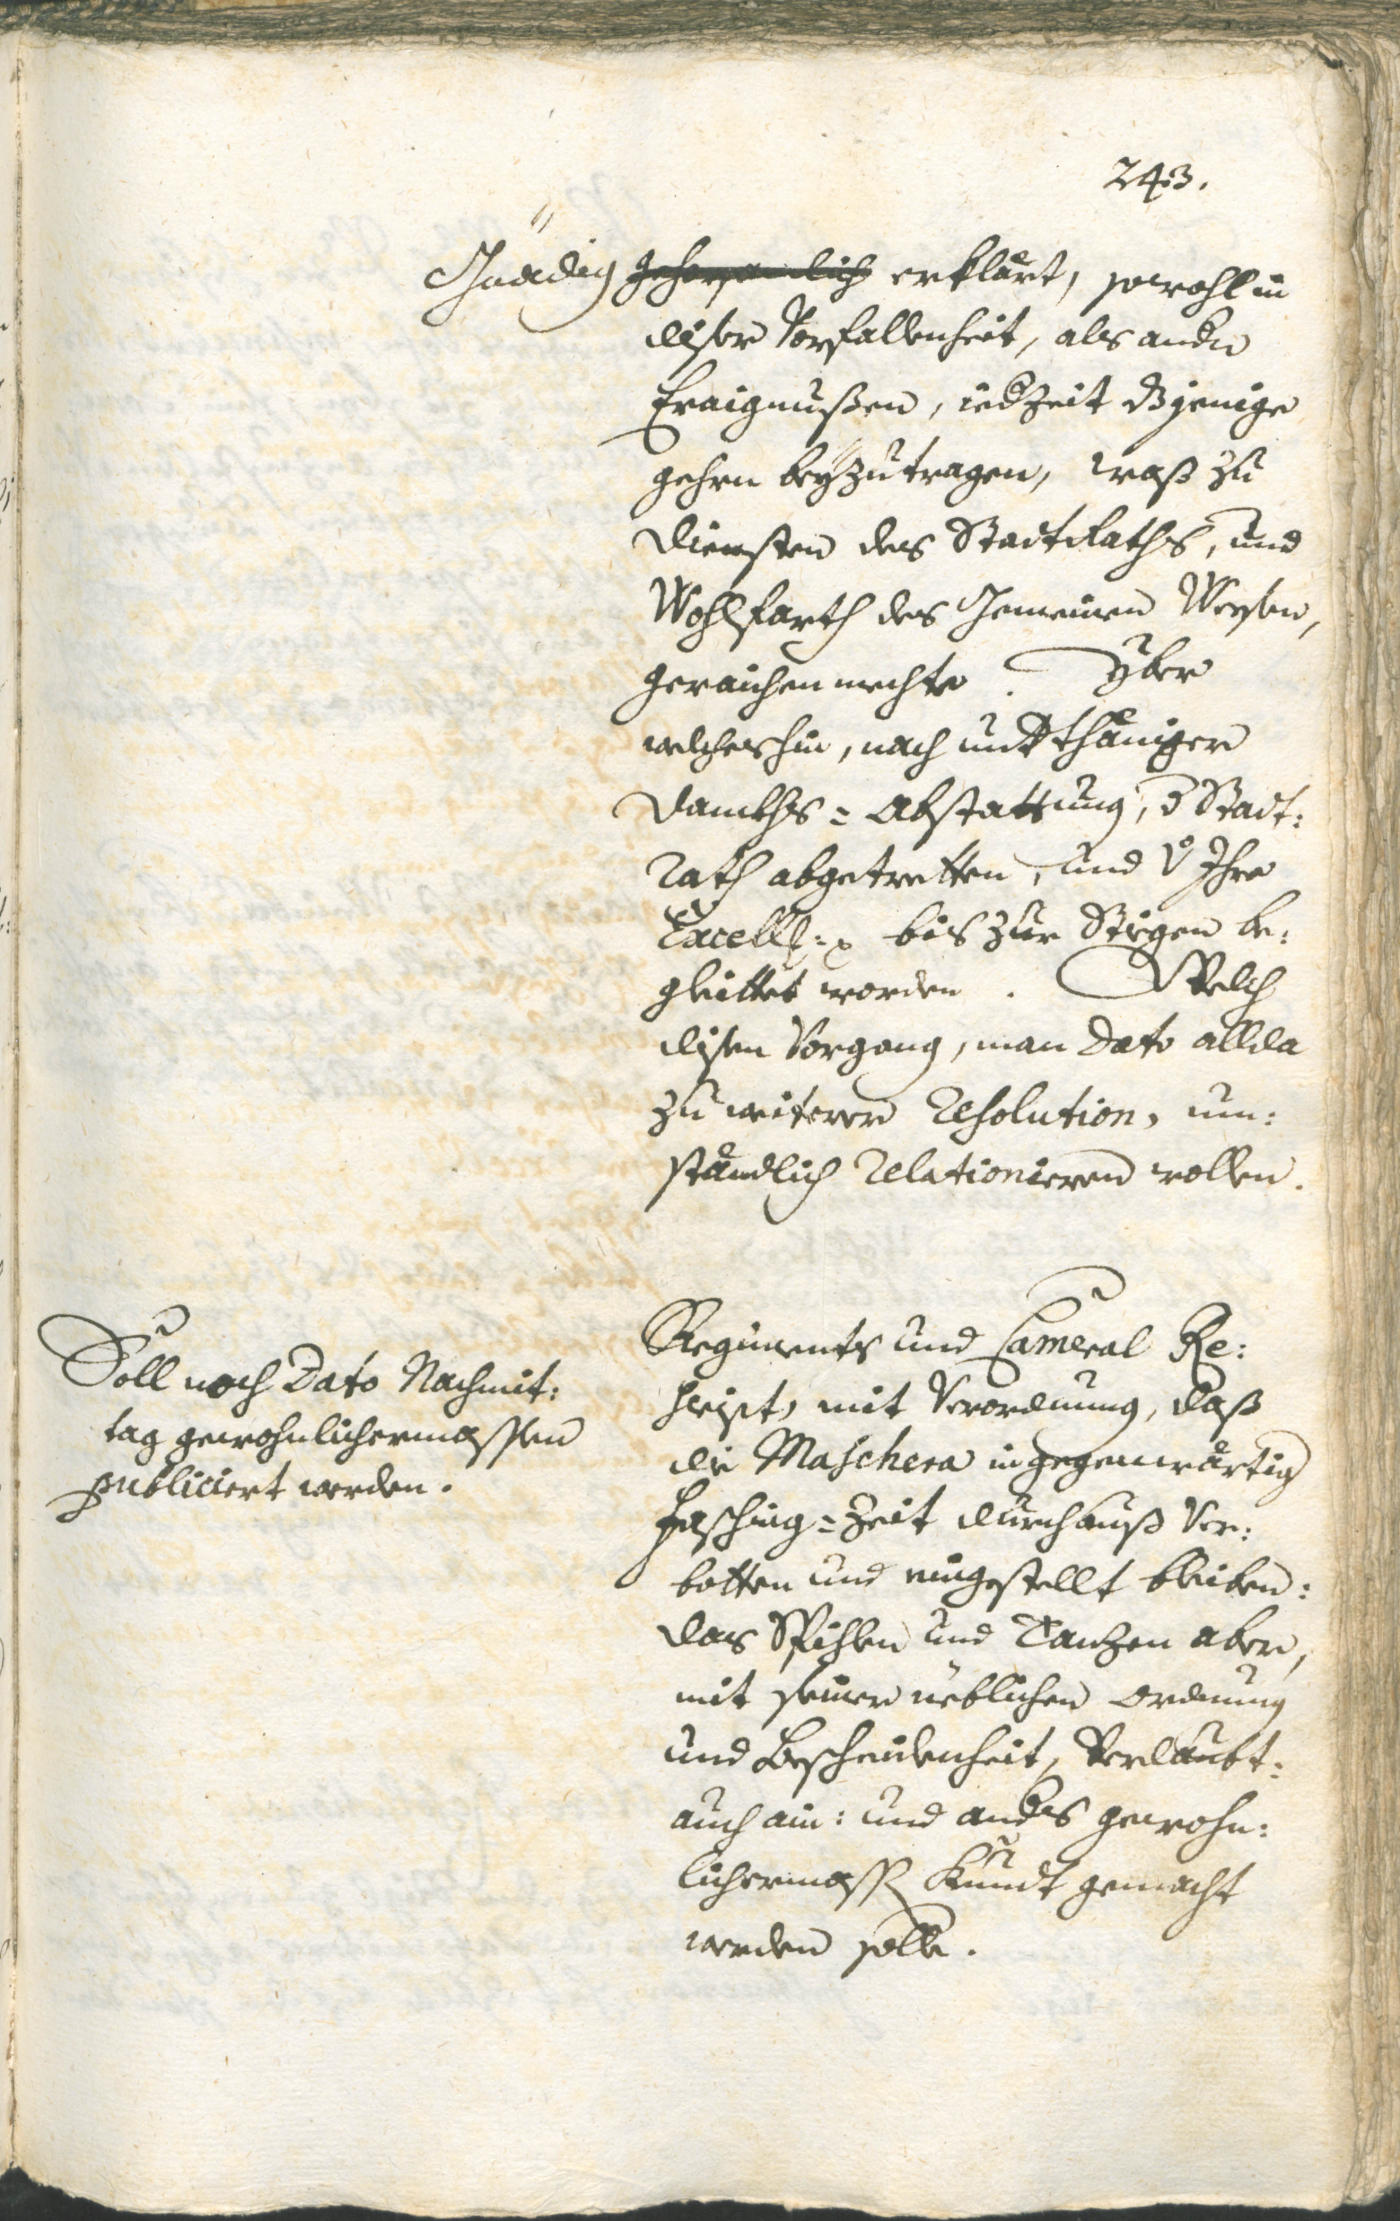 243.
Gnädig gehorsamlich erklärt, sowohl in
diser Vorfallenheit, als andn
Eraignußen, iedZeit dzjenige
gehrn beÿzutragen, waß zu
Diensten des StattRaths, und
Wohlfarth des Gemeinen Weesen,
geraichen mechte. Über
welches hin, nach undthäniger
Danckhs=Abstattung, d Statt:
Rath abgetretten, und v Ihro
Excell: bis zur Stiegen be:
gleittet worden. Welch
disen Vorgang, man Dato allda
zu weiterer Resolution, um:
ständlich Relationieren wollen.
Soll noch Dato Nachmit:
tag gewohnlichermassen
publiciert werden.
Regiments und Cameral Re:
script, mit Verordnung, daß
die Maschera in gegenwärtig
Fasching=Zeit durchauß Ver:
botten und eingestellt bleiben:
das Spihlen und Tanzen aber,
mit seiner üeblichen Ordnung
und Bescheidenheit, Verlaubt:
auch ain: und anders gewohn:
lichermass Kundt gemacht
werden solle.